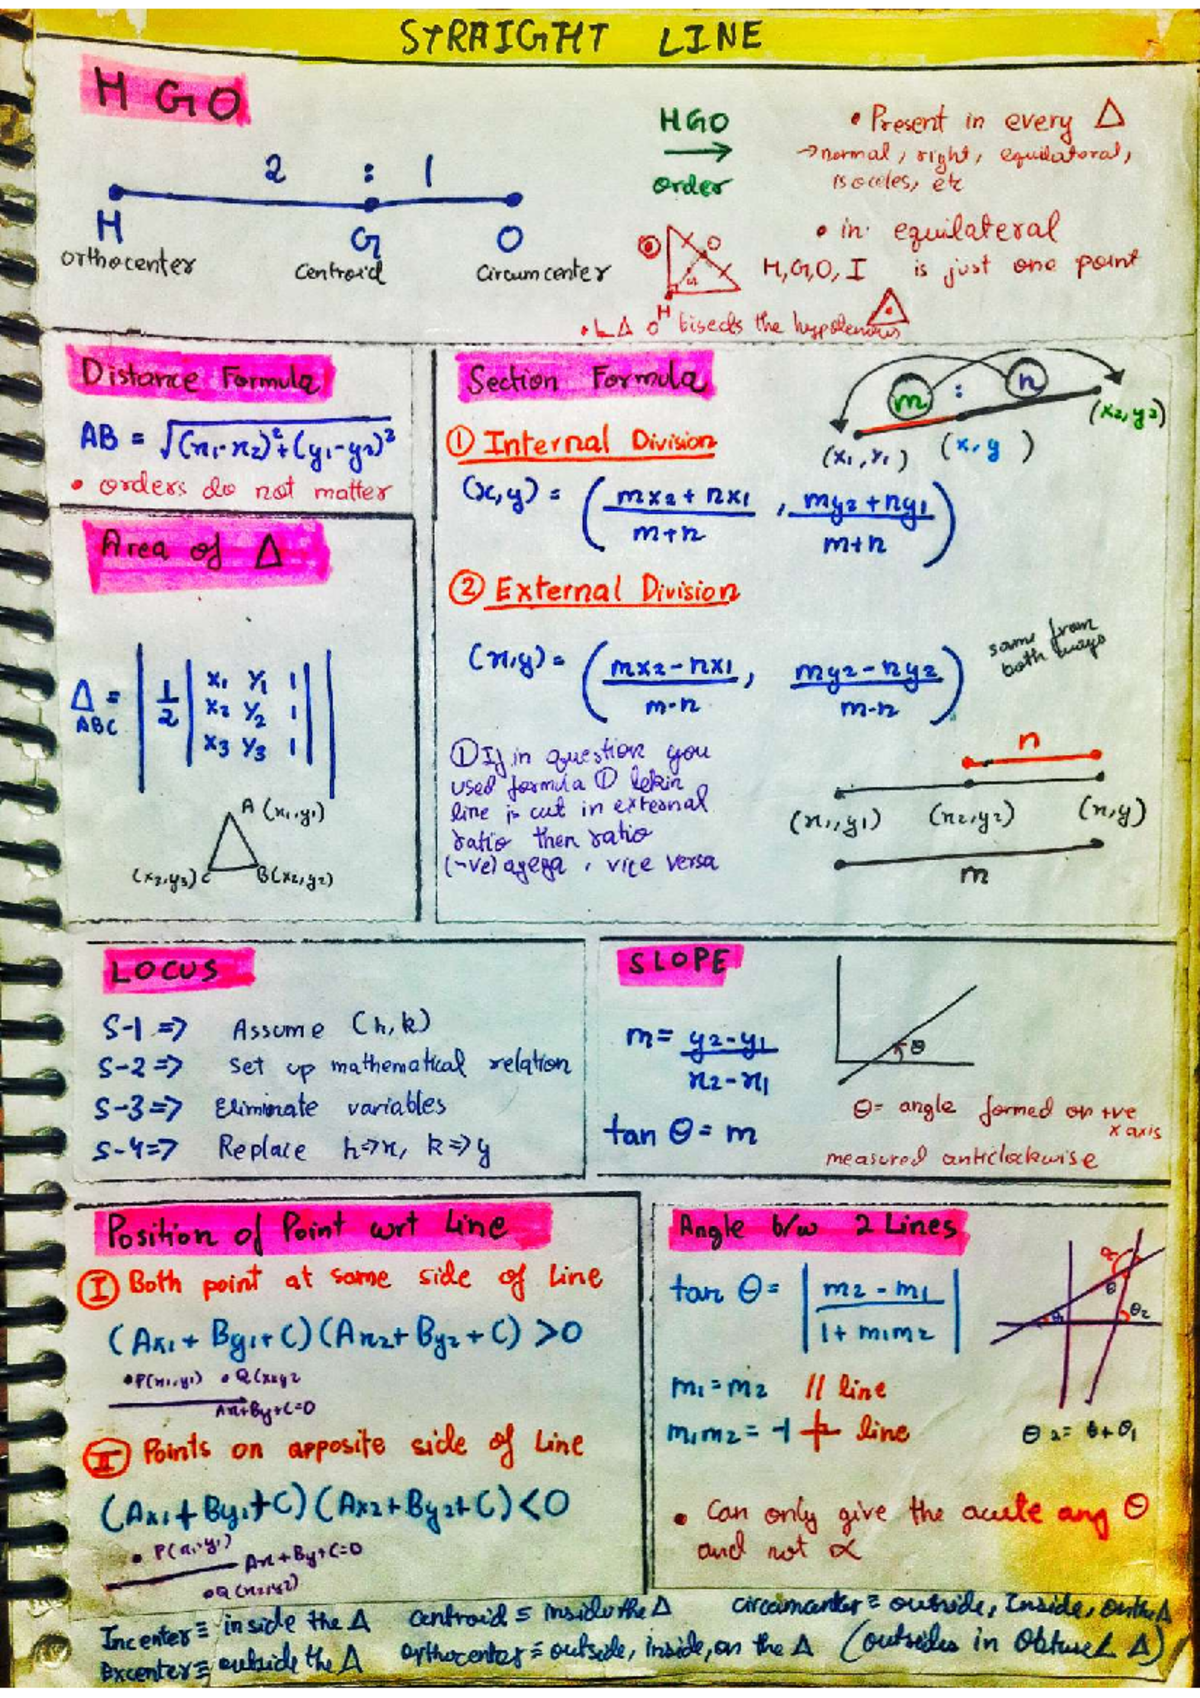 STRAIGHT LINE
H G O
2 : 1
H G O
orthocenter centroid circumcenter
HGO
order
• Present in every Δ
→ normal, right, equilateral,
isoceles, etc
• in equilateral
H, G, O, I is just one point
O
G
H
• L Δ O bisects the hypotenuis
Distance Formula
AB = √(x1-x2)²+(y1-y2)²
• orders do not matter
Area of Δ
Δ ABC = | 1/2 | x1 y1 1 |
x2 y2 1
x3 y3 1 | |
A (x1, y1)
(x3, y3) C B(x2, y2)
Section Formula
m : n
(x1, y1) (x, y) (x2, y2)
① Internal Division
(x, y) = ( mx2 + nx1 / m+n , my2 + ny1 / m+n )
② External Division
(x, y) = ( mx2 - nx1 / m-n , my2 - ny2 / m-n )
same from
both ways
① If in question you
used formula ① lekin
line is cut in external
ratio then ratio
(-ve) ayega, vice versa
n
(x1, y1) (x2, y2) (x, y)
m
LOCUS
S-1 => Assume (h, k)
S-2 => Set up mathematical relation
S-3 => Eliminate variables
S-4 => Replace h→x, k→y
SLOPE
m = y2-y1 / x2-x1
tan θ = m
θ
θ = angle formed on +ve
x axis
measured anticlockwise
Position of Point wrt Line
Ⓘ Both point at same side of Line
(Ax1 + By1 + C) (Ax2 + By2 + C) > 0
• P(x1, y1) • Q(x2 y2
Ax+By+C=0
Ⓘ︎Ⓘ Points on opposite side of Line
(Ax1 + By1 + C) (Ax2 + By2 + C) < 0
• P(x1, y1) Ax + By + C = 0
• Q(x2, y2)
Angle b/w 2 Lines
tan θ = | m2 - m1 / 1 + m1m2 |
α
θ
θ1 θ2
m1 = m2 // line
m1m2 = -1 ⊥ line
θ2 = θ + θ1
• Can only give the acute ang θ
and not α
Incenter ≡ inside the Δ centroid ≡ inside the Δ circumcenter ≡ outside, Inside, on the Δ
Excenter ≡ outside the Δ Orthocenter ≡ outside, inside, on the Δ (outsides in Obtuse ∠ Δ)